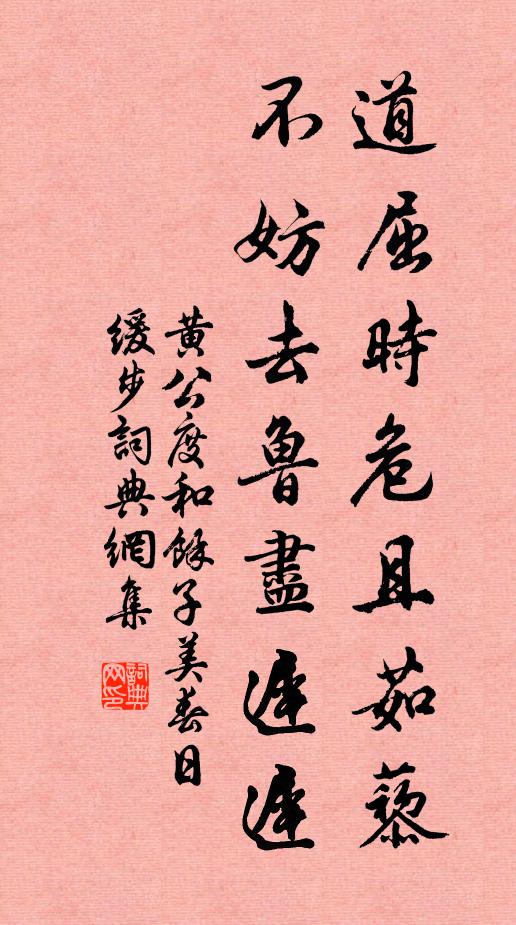 道屈時危且茹藜
不妨去魯盡遲遲
黃公度和餘子美春日
緩步詞典網集
詞典网印